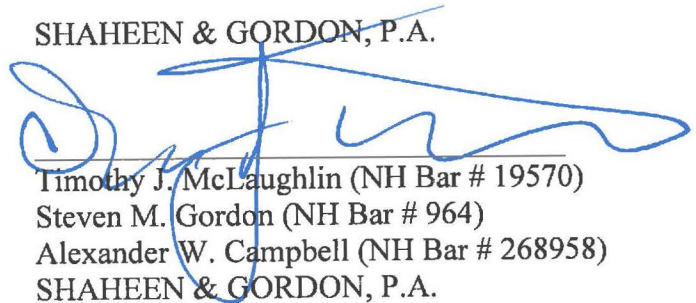 SHAHEEN & GORDON, P.A.
Timothy J. McLaughlin (NH Bar # 19570)
Steven M. Gordon (NH Bar # 964)
Alexander W. Campbell (NH Bar # 268958)
SHAHEEN & GORDON, P.A.